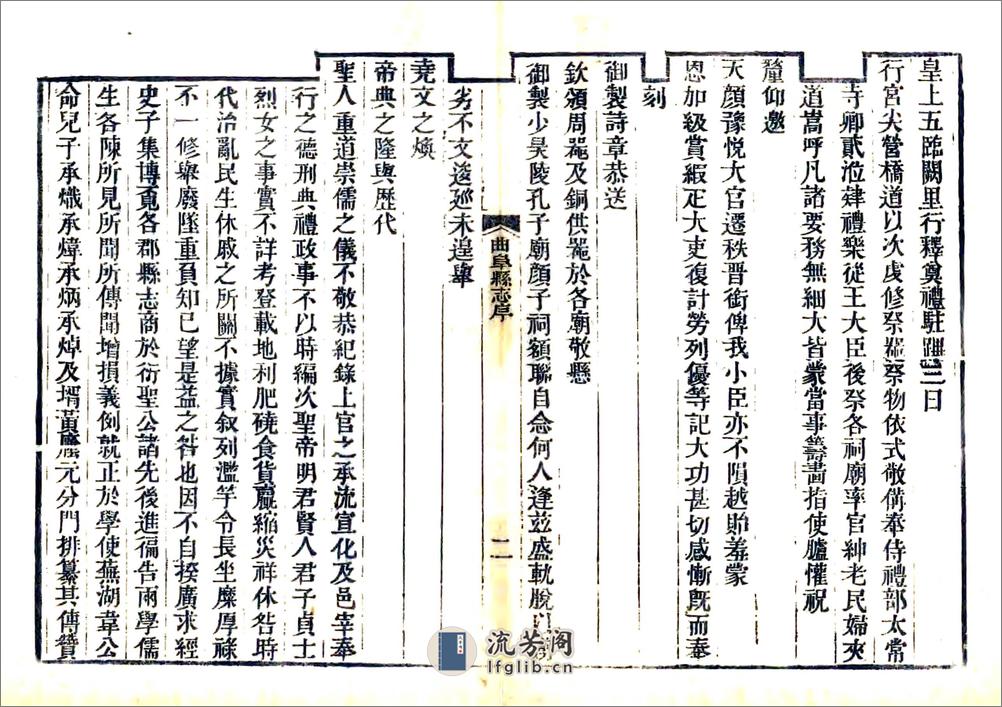 皇上五臨闕里行釋奠禮駐蹕三日
行宮尖營橋道以次虔修祭器祭物依式敬備奉侍禮部太常
寺卿貳涖肄禮樂從王大臣後祭各祠廟率官紳老民婦夾
道嵩呼凡諸要務無細大皆蒙當事籌畫指使臚懽祝
釐仰邀
天顏豫悅大官遷秩晋銜俾我小臣亦不隕越貽羞蒙
恩加級賞緞疋大吏復計勞列優等記大功甚切感慚旣而奉
刻
御製詩章恭送
欽頒周噐及銅供噐於各廟敬懸
御製少昊陵孔子廟顏子祠額聯自念何人逢兹盛軌脫
曲阜縣志序
二
劣不文逡廵未遑肆
堯文之煥
帝典之隆與歷代
聖人重道崇儒之儀不敬恭紀錄上官之承流宣化及邑宰奉
行之德刑典禮政事不以時編次聖帝明君賢人君子貞士
烈女之事實不詳考登載地利肥磽食貨贏縮災祥休咎時
代治亂民生休戚之所關不據實叙列濫竽令長坐糜厚祿
不一修舉廢墜重負知已望是益之咎也因不自揆廣求經
史子集博覔各郡縣志商於衍聖公諸先後進徧告兩學儒
生各陳所見所聞所傳聞增損義例就正於學使蕪湖韋公
命兒子承熾承煒承炳承焯及壻黃應元分門排纂其傳贊
流芳阁
lfglib.cn